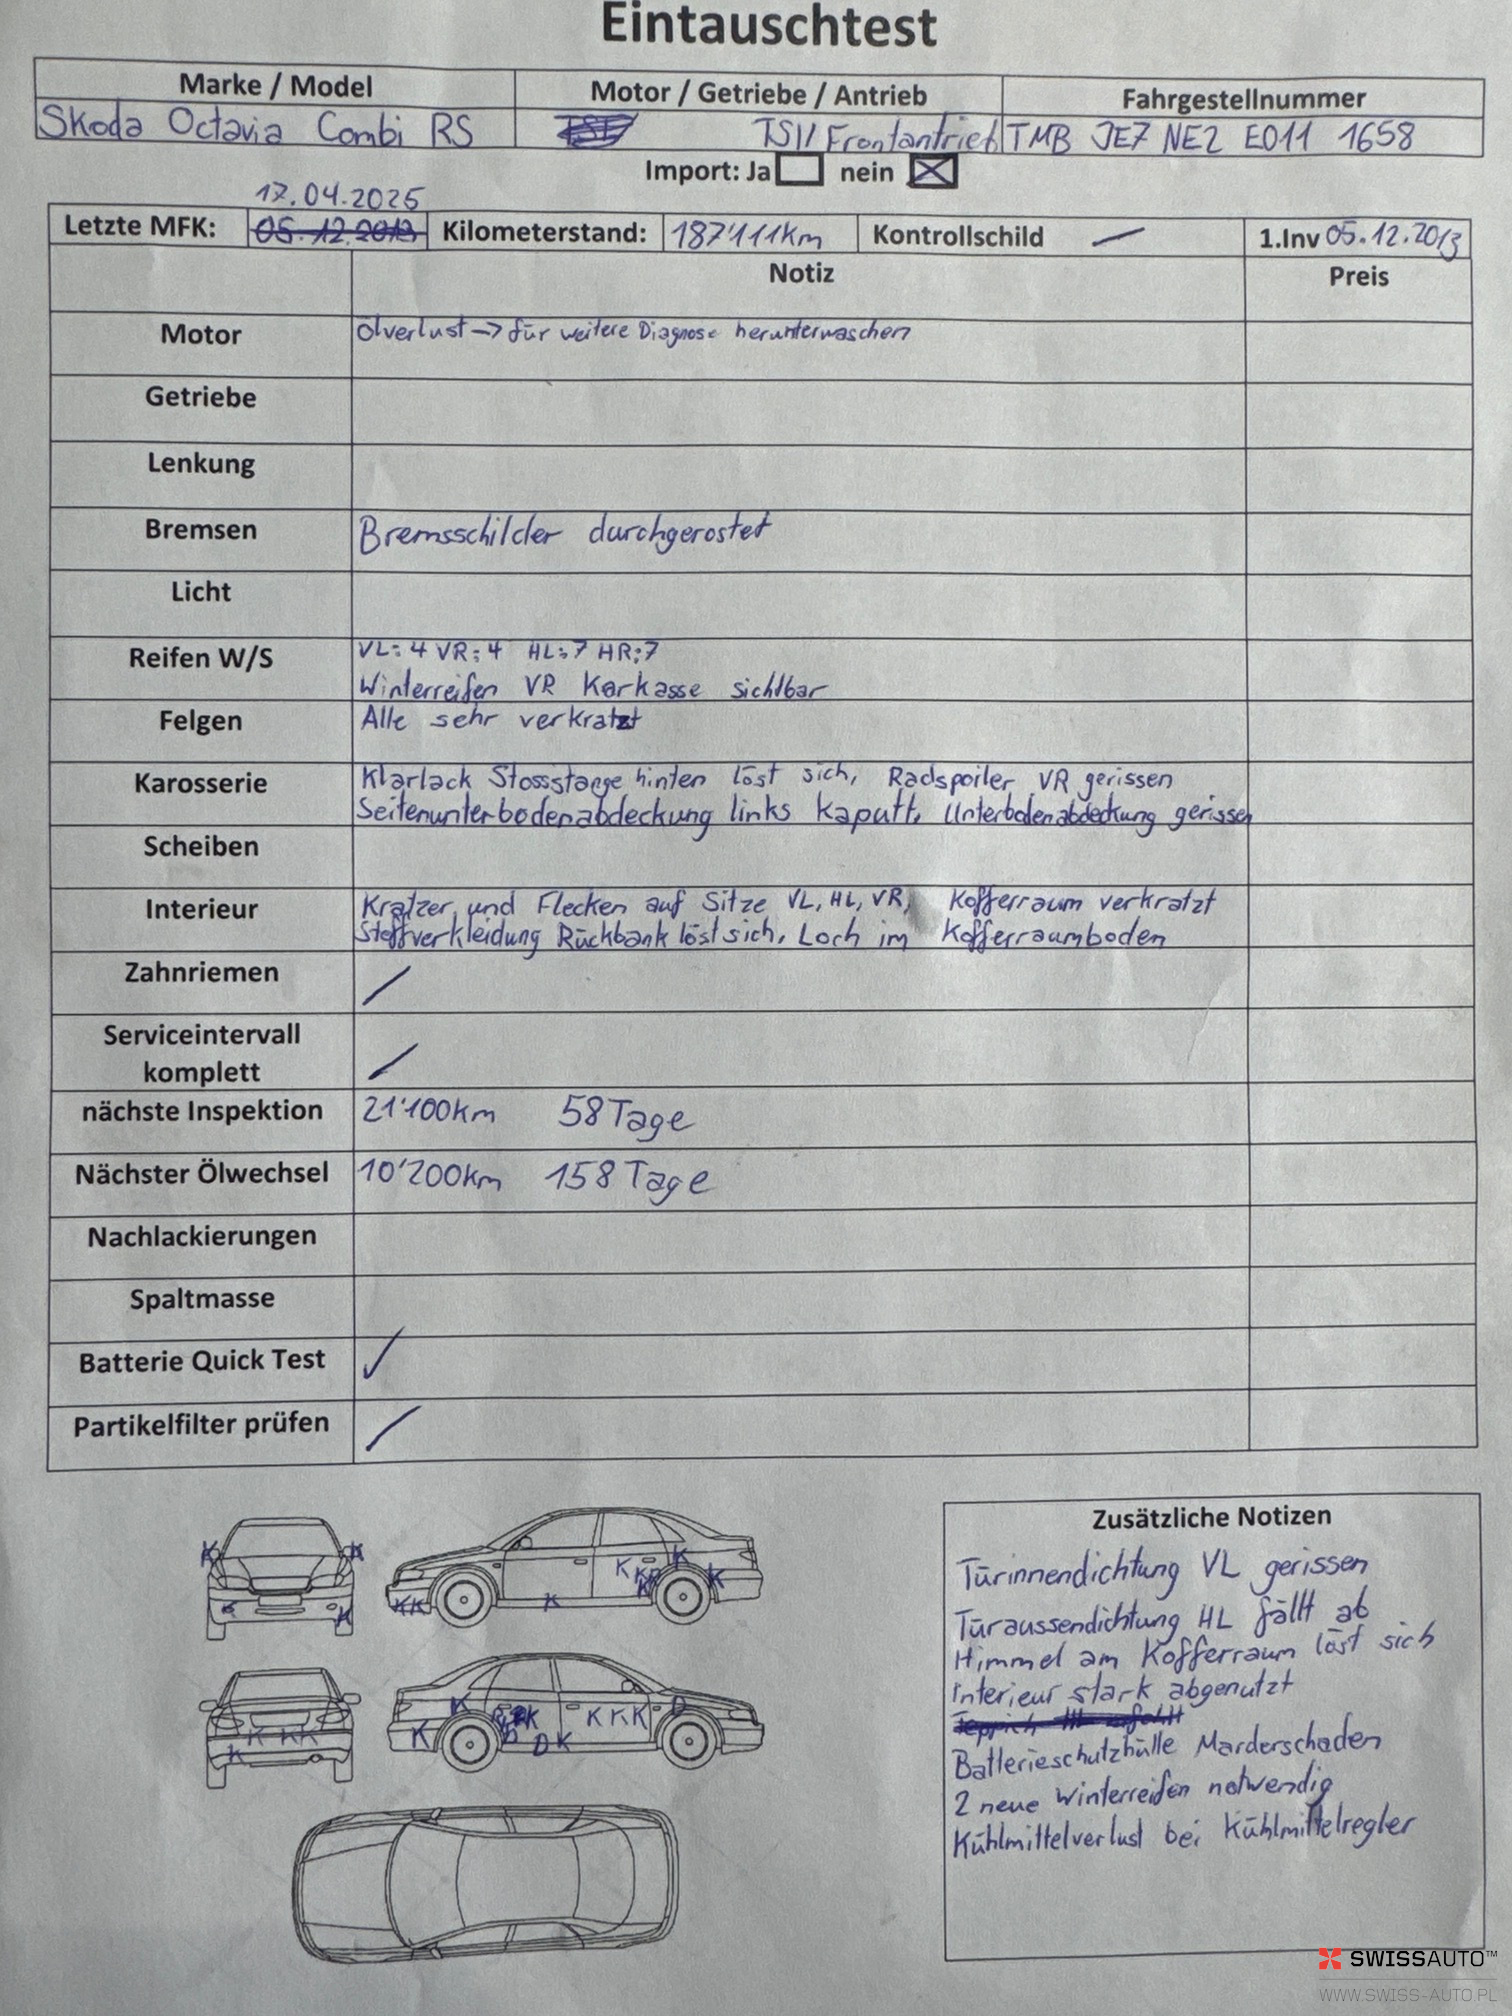 Eintauschtest
Marke / Model Motor / Getriebe / Antrieb Fahrgestellnummer
Skoda Octavia Combi RS TSI/ Frontantrieb TMB JE7 NE2 E011 1658
Import: Ja nein
17.04.2025
Letzte MFK: 05.12.2013 Kilometerstand: 187'111km Kontrollschild 1.Inv 05.12.2013
Notiz Preis
Motor Ölverlust -> für weitere Diagnose herunterwaschen
Getriebe
Lenkung
Bremsen Bremsschilder durchgerostet
Licht
Reifen W/S VL: 4 VR: 4 HL: 7 HR: 7
Winterreifen VR Karkasse sichtbar
Felgen Alle sehr verkratzt
Karosserie Klarlack Stossstange hinten löst sich, Radspoiler VR gerissen
Seitenunterbodenabdeckung links kaputt, Unterbodenabdeckung gerissen
Scheiben
Interieur Kratzer und Flecken auf Sitze VL, HL, VR, Kofferraum verkratzt
Stoffverkleidung Rückbank löst sich, Loch im Kofferraumboden
Zahnriemen
Serviceintervall
komplett
nächste Inspektion 21'100km 58 Tage
Nächster Ölwechsel 10'200km 158 Tage
Nachlackierungen
Spaltmasse
Batterie Quick Test
Partikelfilter prüfen
Zusätzliche Notizen
Türinnendichtung VL gerissen
Türaussendichtung HL fällt ab
Himmel am Kofferraum löst sich
Interieur stark abgenutzt
Batterieschutzhülle Marderschaden
2 neue Winterreifen notwendig
Kühlmittelverlust bei Kühlmittelregler
K K
K K
K K K K K
K K K K
K K K K
K K K K D
K D K
SWISSAUTO™
WWW.SWISS-AUTO.PL